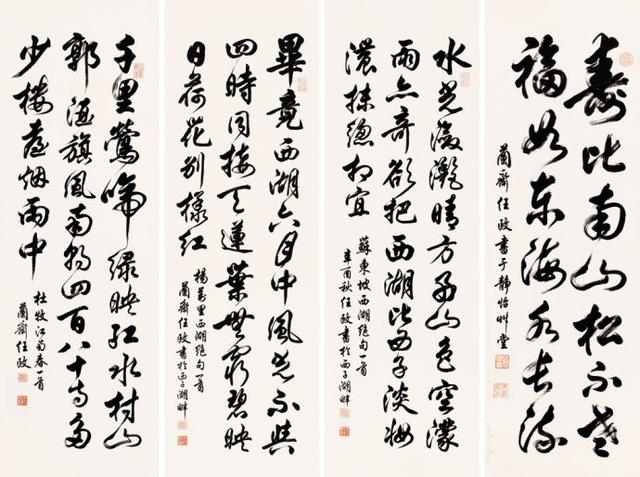 壽比南山松不老
福如东海水长流
蘭齋任政書于静怡艸堂
水光潋灔晴方好山色空濛
雨亦奇欲把西湖比西子淡妝
濃抹總相宜
蘇東坡西湖絶句一首
辛酉秋任政書於西子湖畔
畢竟西湖六月中風光不與
四時同接天蓮葉無窮碧映
日荷花别樣紅
楊萬里西湖絶句一首
蘭齋任政書於西子湖畔
千里鶯啼绿映红水村山
郭酒旗風南朝四百八十寺多
少樓臺烟雨中
杜牧江南春一首
蘭齋任政